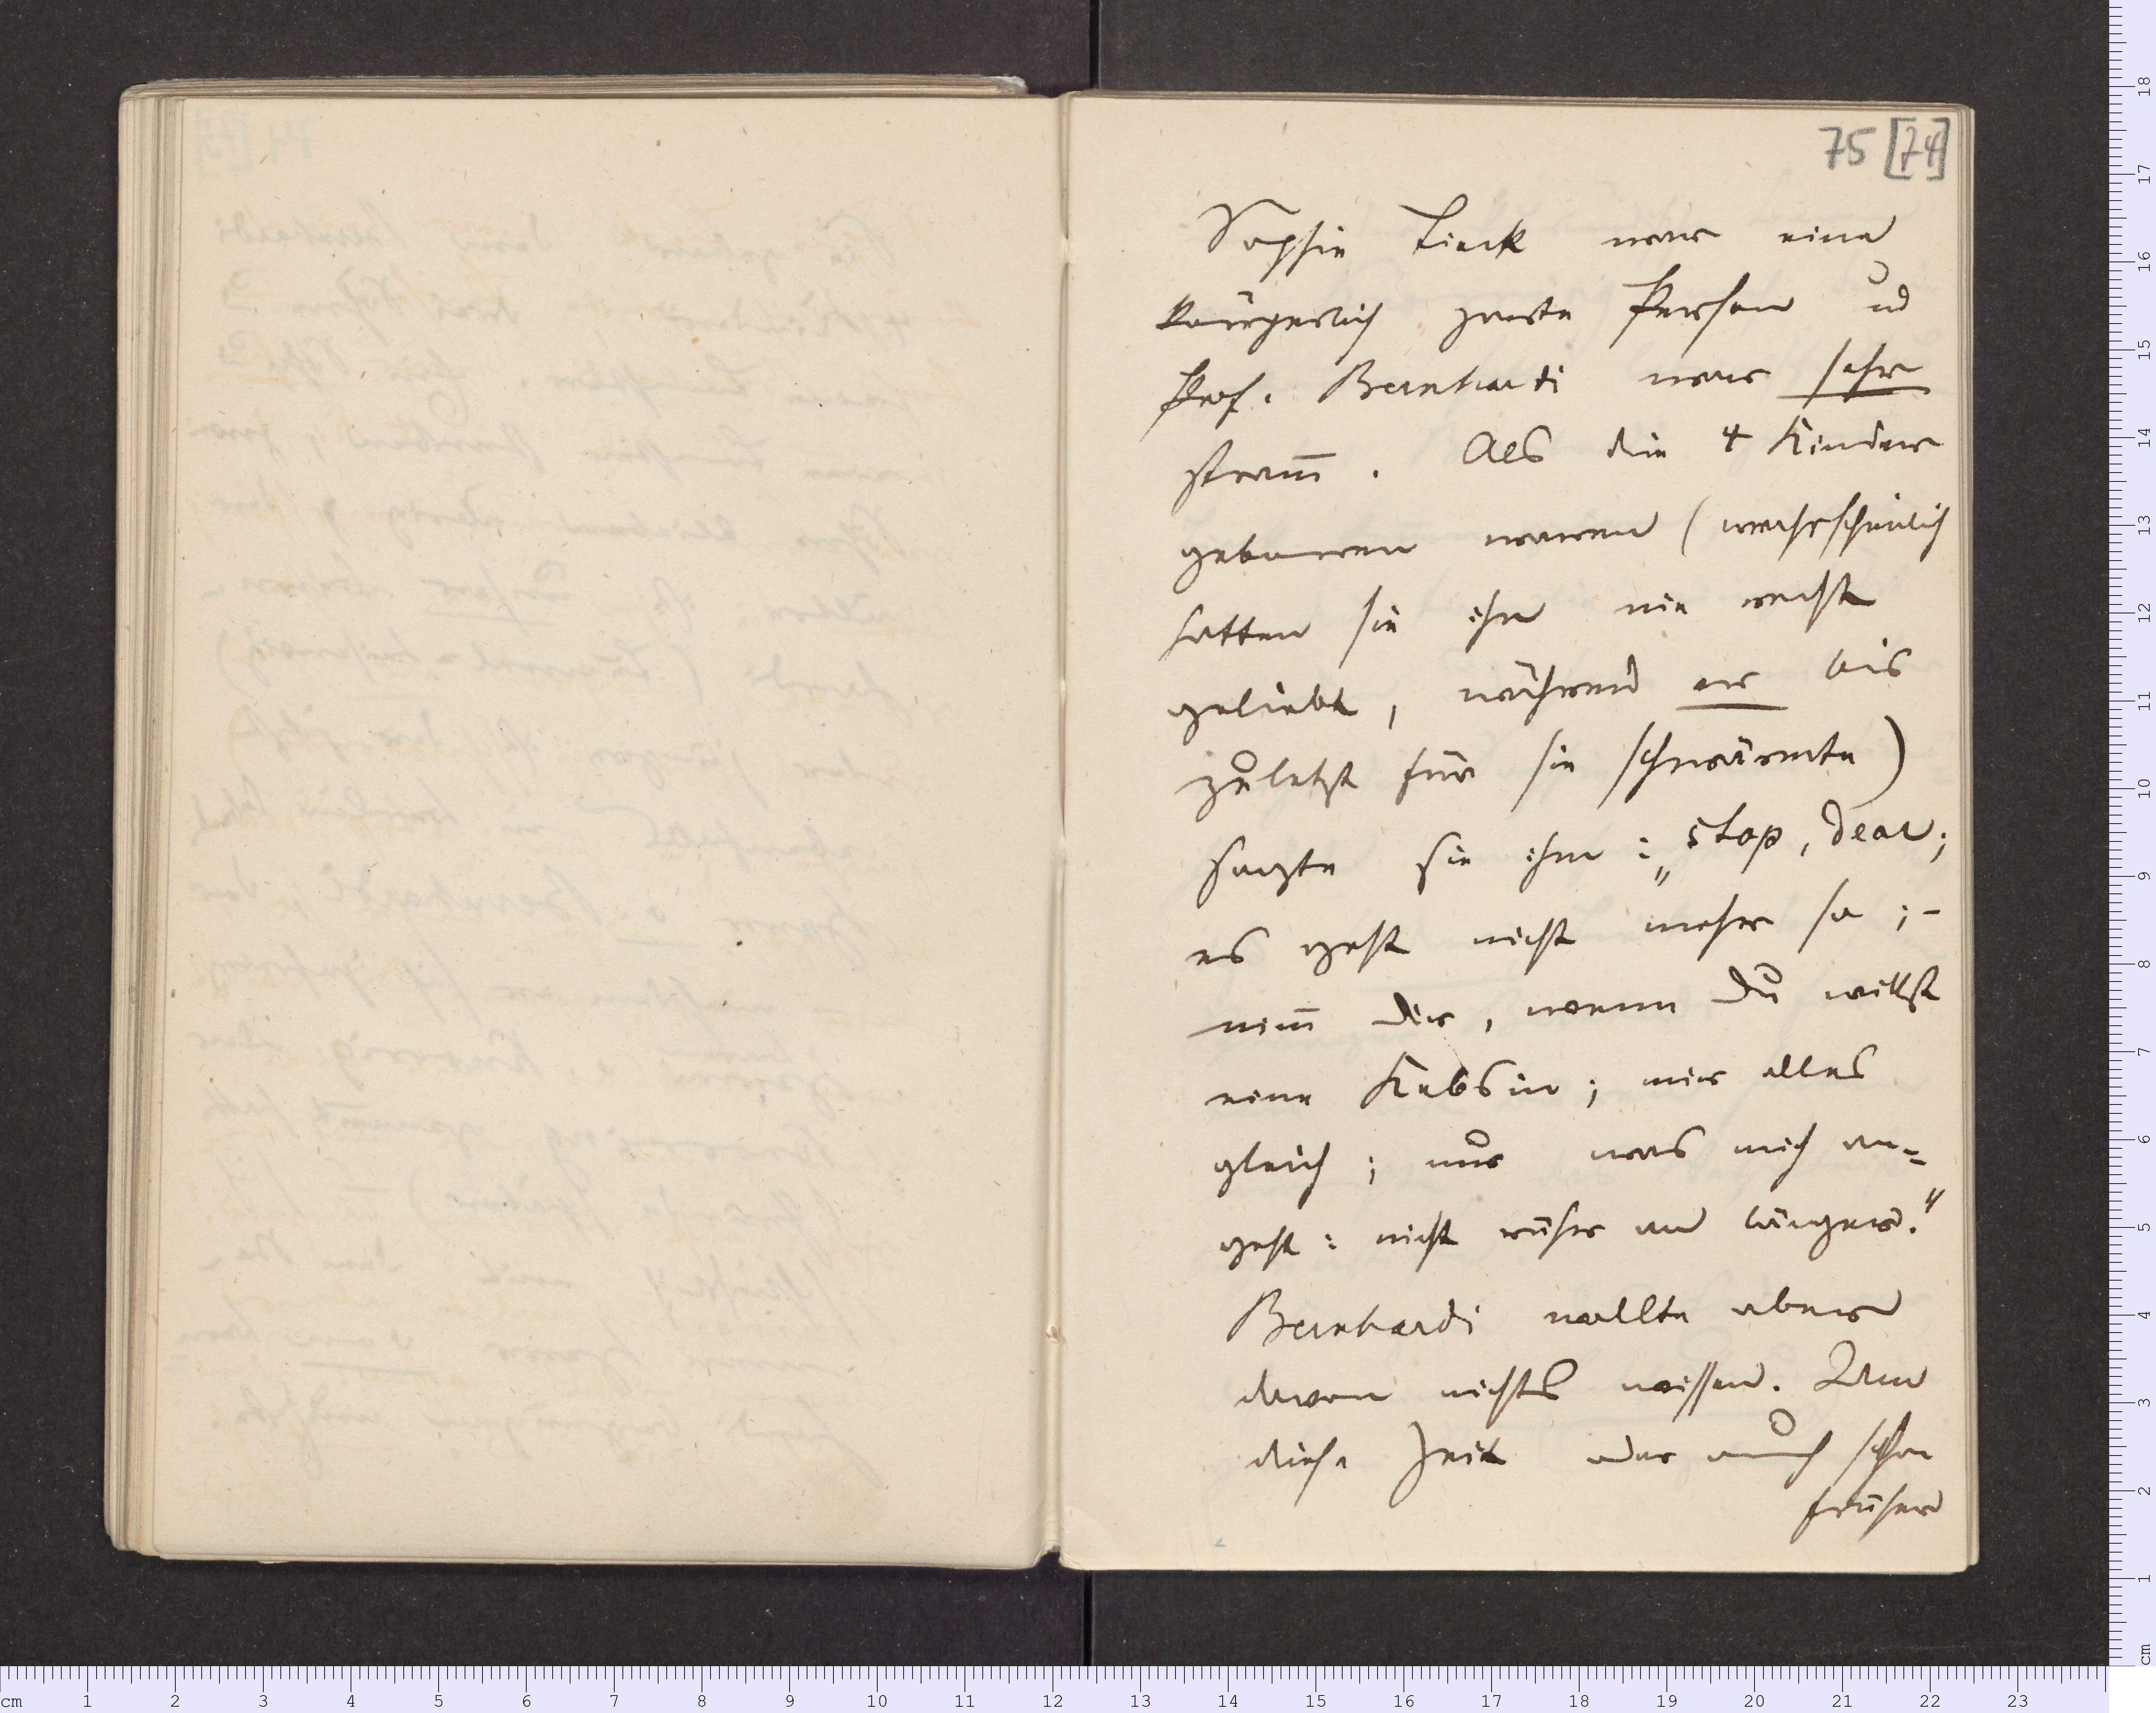 75 [74]
Sophie Tieck war eine
körperlich zarte Person ud
Prof. Bernhardi war sehr
stram̅. Als die 4 Kinder
geboren waren (wahrscheinlich
hatten sie ihn nie recht
geliebt, während er bis
zuletzt für sie schwärmte)
sagte sie ihm: „stop, dear;
es geht nicht mehr so; –
nim̅ Dir, wenn Du willst
eine Kebsin; mir alles
gleich; nur was mich an=
geht: nicht rühr an länger."
Bernhardi wollte aber
davon nichts wissen. Um
diese Zeit oder auch schon
früher